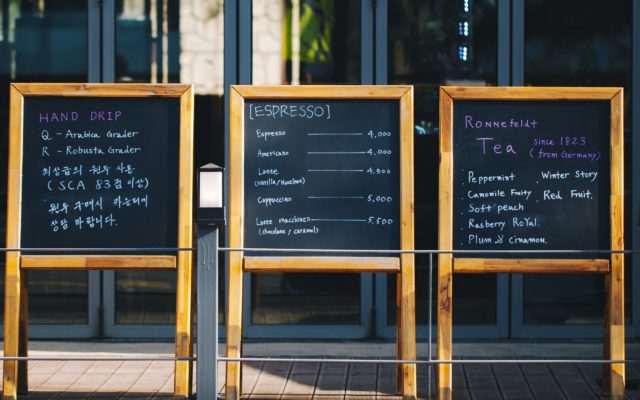 HAND DRIP
Q - Arabica Grader
R - Robusta Grader
최상급의 원두 사용
(SCA 83점 이상)
원두 구매시 카운터에
상담 바랍니다.
[ESPRESSO]
Espresso 4,000
Americano 4,000
Latte 4,500
(vanilla/Hazelnut)
Cappuccino 5,000
Latte macchiato 5,500
(chocolate / caramel)
Ronnefeldt
Tea since 1823
(from Germany)
. Peppermint
. Camomile Fruity
. Soft peach
. Rasberry Royal.
. Plum & cinnamon.
. Winter Story
. Red Fruit.